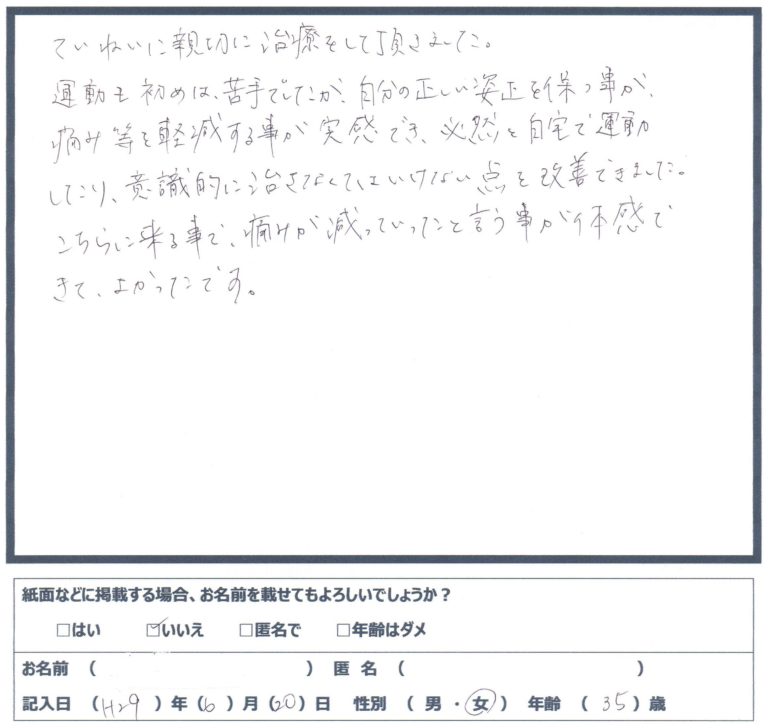 ていねいに親切に治療をして頂きました。
運動も初めは、苦手でしたが、自分の正しい姿正を保つ事が、
痛み等を軽減する事が実感でき、必然と自宅で運動
したり、意識的に治さなくてはいけない点を改善できました。
こちらに来る事で、痛みが減っていったと言う事が体感で
きて、よかったです。
紙面などに掲載する場合、お名前を載せてもよろしいでしょうか？
□はい ☑いいえ □匿名で □年齢はダメ
お名前 （ ） 匿 名 （ ）
記入日 （H29）年（6）月（20）日 性別 （ 男 ・ 女 ） 年齢 （ 35 ）歳